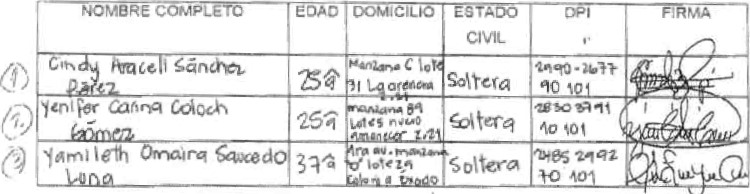 NOMBRE COMPLETO EDAD DOMICILIO ESTADO CIVIL DPI FIRMA
1. Cindy Araceli Sánchez Pérez 25a Manzana C lote 31 La 2.21 Soltera 2990-2677 90 101
2. Yenifer Carina Coloch Gómez 25a manzana B9 Lotes nuevo amanecer 2.21 Soltera 2830 3791 10 101
3. Yamileth Omaira Saucedo Luna 37a 1ra av. manzana "D" lote 29 Colonia Éxodo Soltera 2485 2992 70 101